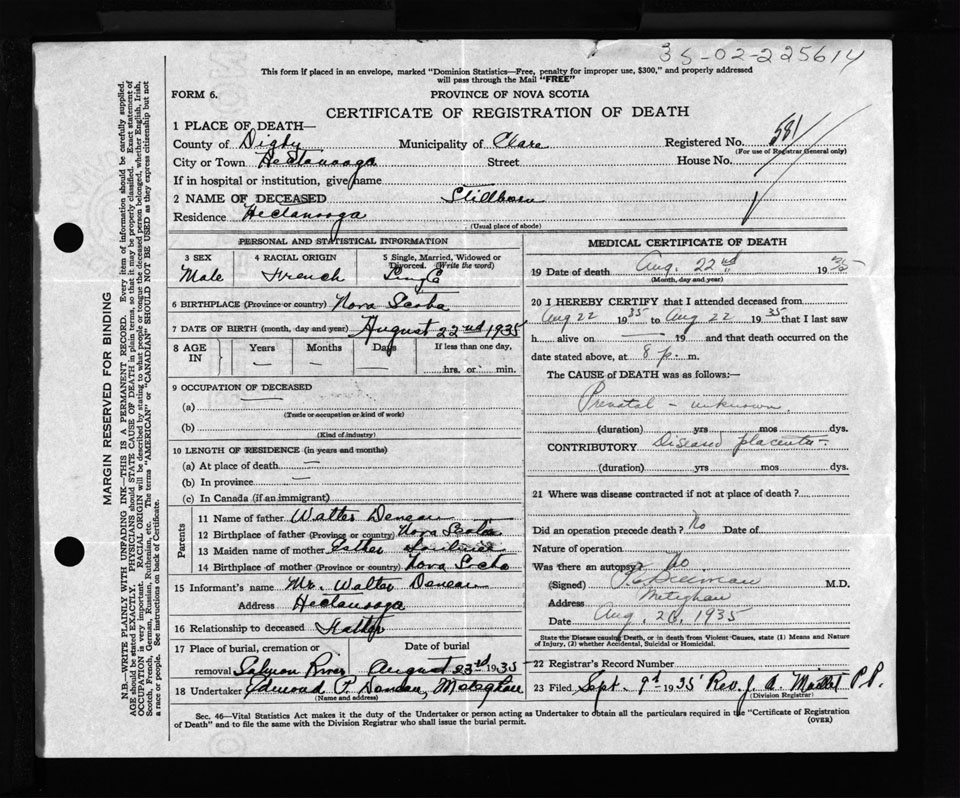 35-02-225614
This form if placed in an envelope, marked "Dominion Statistics—Free, penalty for improper use, $300," and properly addressed
will pass through the Mail "FREE"
FORM 6.
PROVINCE OF NOVA SCOTIA
CERTIFICATE OF REGISTRATION OF DEATH
1 PLACE OF DEATH—
County of Digby Municipality of Clare Registered No. 581
(For use of Registrar General only)
City or Town Hectanooga Street House No.
If in hospital or institution, give name
2 NAME OF DECEASED Stillborn
Residence Hectanooga
(Usual place of abode)
PERSONAL AND STATISTICAL INFORMATION
3 SEX 4 RACIAL ORIGIN 5 Single, Married, Widowed or
Divorced. (Write the word)
Male French Single
6 BIRTHPLACE (Province or country) Nova Scotia
7 DATE OF BIRTH (month, day and year) August 22nd 1935
8 AGE IN Years Months Days If less than one day,
— — — hrs. or min.
9 OCCUPATION OF DECEASED
(a)
(Trade or occupation or kind of work)
(b)
(Kind of industry)
10 LENGTH OF RESIDENCE (in years and months)
(a) At place of death —
(b) In province —
(c) In Canada (if an immigrant)
Parents
11 Name of father Walter Deneau
12 Birthplace of father (Province or country) Nova Scotia
13 Maiden name of mother Esther
14 Birthplace of mother (Province or country) Nova Scotia
15 Informant's name Mr. Walter Deneau
Address Hectanooga
16 Relationship to deceased Father
17 Place of burial, cremation or Date of burial
removal Salmon River August 23rd 1935
18 Undertaker Edmond P. Deneau, Meteghan
(Name and address)
MEDICAL CERTIFICATE OF DEATH
19 Date of death Aug. 22nd 1935
(Month, day and year)
20 I HEREBY CERTIFY that I attended deceased from
Aug 22 1935 to Aug 22 1935 that I last saw
h alive on — 19 and that death occurred on the
date stated above, at 8 p. m.
The CAUSE of DEATH was as follows:—
Prenatal - unknown.
(duration) yrs mos dys.
CONTRIBUTORY Diseased placenta -
(duration) yrs mos dys.
21 Where was disease contracted if not at place of death?
Did an operation precede death? No Date of
Nature of operation
Was there an autopsy? No.
(Signed) M.D.
Address Meteghan
Date Aug. 26, 1935
State the Disease causing Death, or in death from Violent Causes, state (1) Means and Nature
of Injury, (2) whether Accidental, Suicidal or Homicidal.
22 Registrar's Record Number
23 Filed Sept. 9th 1935 Rev. J. A. Maillet P.P.
(Division Registrar)
Sec. 46—Vital Statistics Act makes it the duty of the Undertaker or person acting as Undertaker to obtain all the particulars required in the "Certificate of Registration
of Death" and to file the same with the Division Registrar who shall issue the burial permit.
(OVER)
MARGIN RESERVED FOR BINDING
N.B.—WRITE PLAINLY WITH UNFADING INK—THIS IS A PERMANENT RECORD. Every item of information should be carefully supplied.
AGE should be stated EXACTLY. PHYSICIANS should STATE CAUSE OF DEATH in plain terms, so that it may be properly classified. Exact statement of
OCCUPATION is very important. RACIAL ORIGIN will be described by stating to what people or tongue the deceased person belonged, whether English, Irish,
Scotch, French, German, Russian, Ruthenian, etc. The terms "AMERICAN" or "CANADIAN" SHOULD NOT BE USED as they express citizenship but not
a race or people. See instructions on back of Certificate.